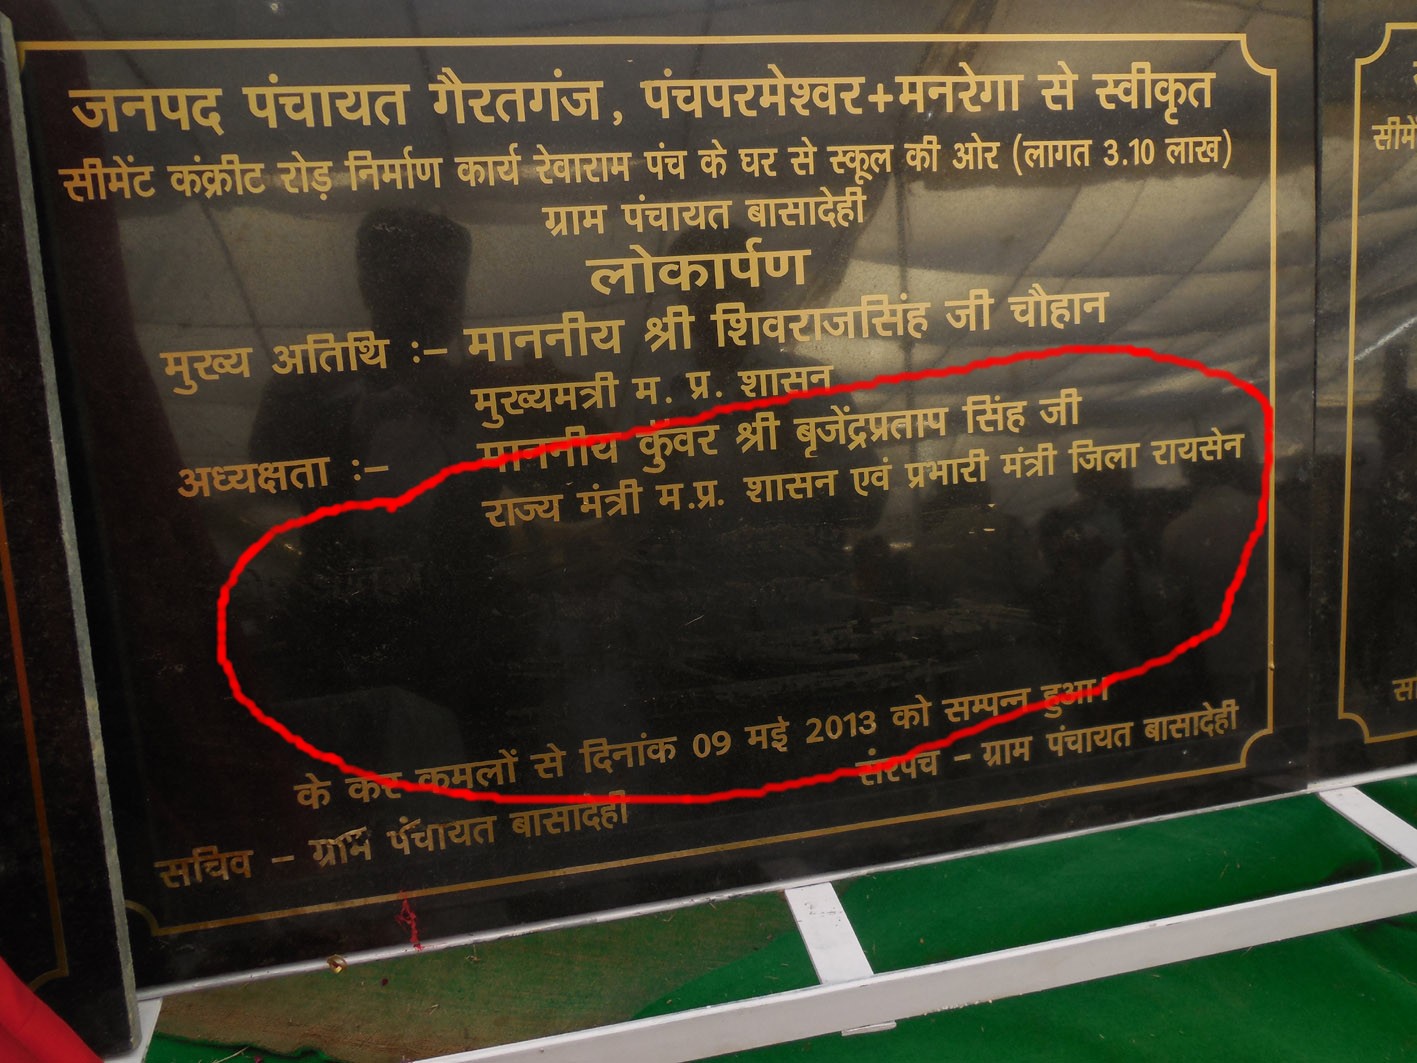 जनपद पंचायत गैरतगंज, पंचपरमेश्वर+मनरेगा से स्वीकृत
सीमेंट कंक्रीट रोड़ निर्माण कार्य रेवाराम पंच के घर से स्कूल की ओर (लागत 3.10 लाख)
ग्राम पंचायत बासादेही
लोकार्पण
मुख्य अतिथि :– माननीय श्री शिवराजसिंह जी चौहान
मुख्यमत्री म. प्र. शासन
अध्यक्षता :– माननीय कुंवर श्री बृजेंद्रप्रताप सिंह जी
राज्य मंत्री म.प्र. शासन एवं प्रभारी मंत्री जिला रायसेन
के कर कमलों से दिनांक 09 मई 2013 को सम्पन्न हुआ।
सचिव – ग्राम पंचायत बासादेही सरपंच – ग्राम पंचायत बासादेही
सीमें